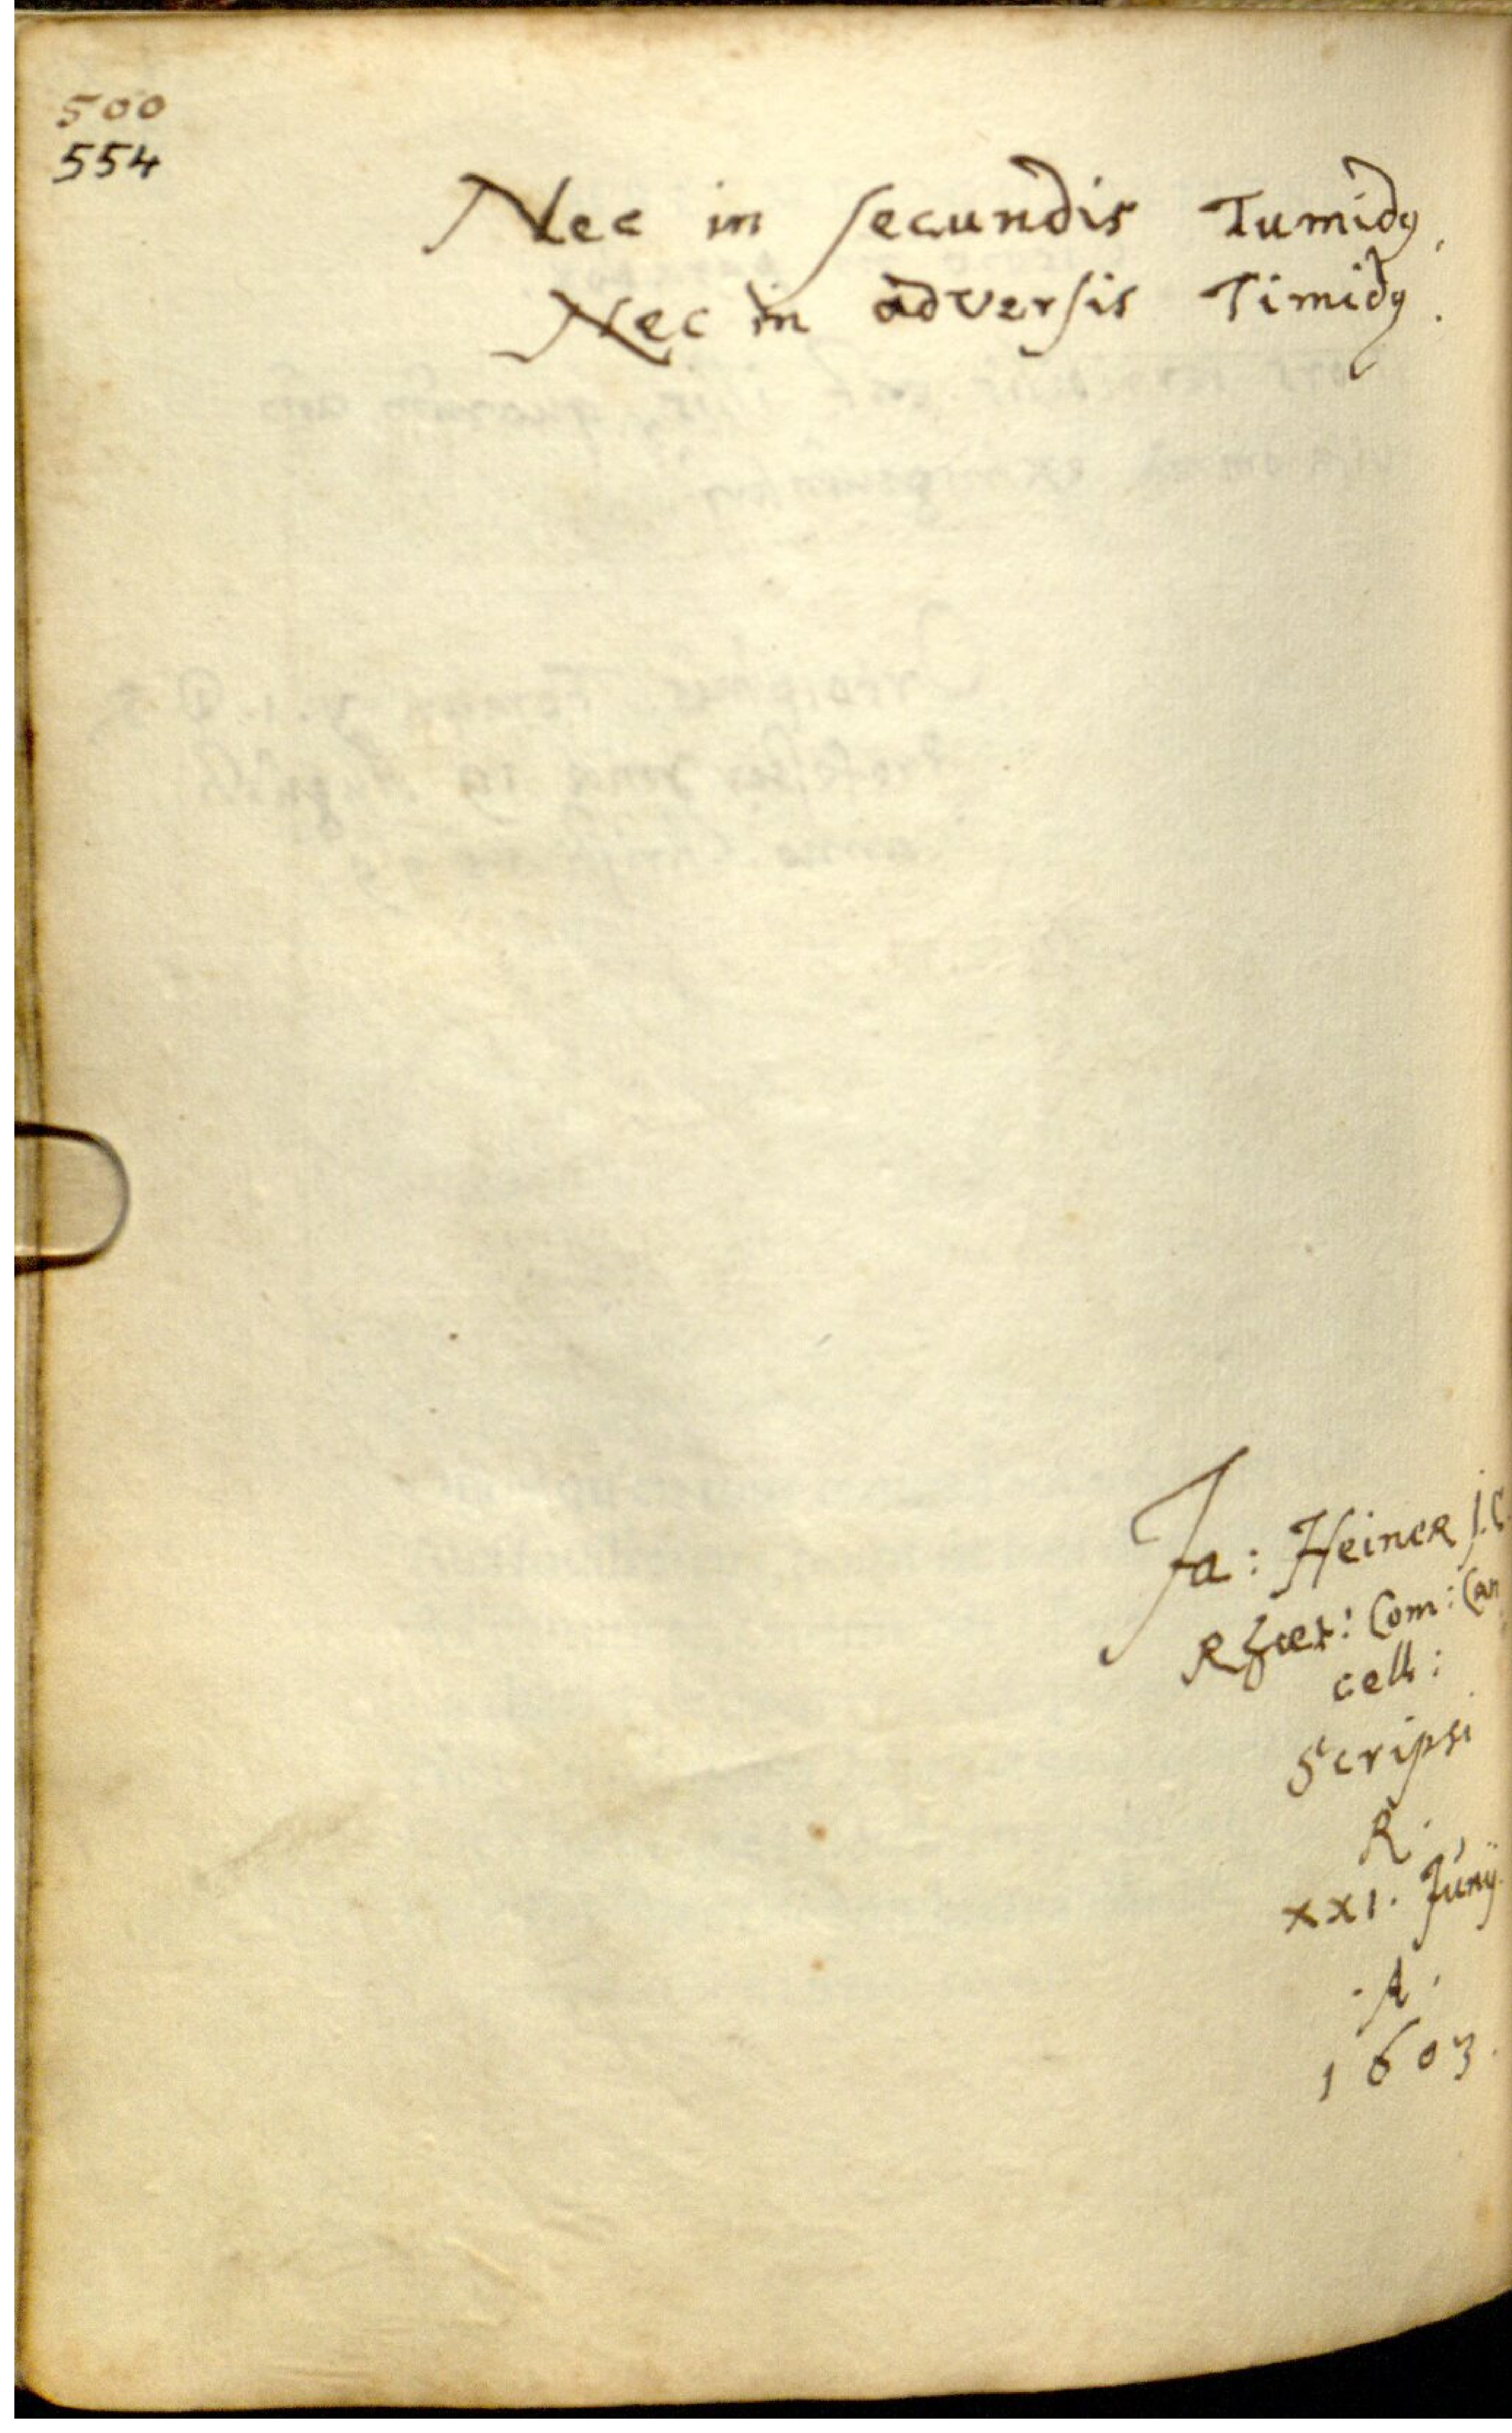 500
554
Nec in secundis Tumidꝰ,
Nec in adversis Timidꝰ.
Ja: Heiner J.C.
Com: Can
cell:
Scripsi
R.
xxi. Junij.
.A.
1603.